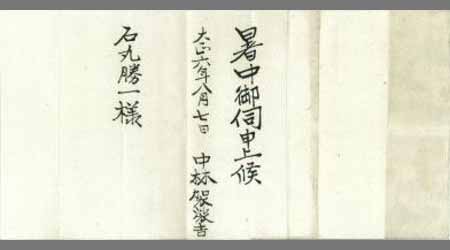 暑中御伺申上候
大正六年八月七日 中林
石丸勝一様